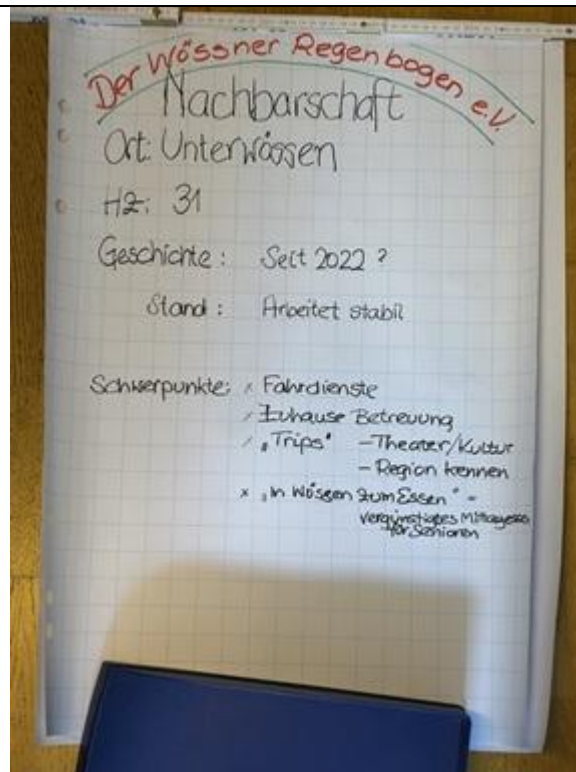 Der Wössner Regenbogen e.V.
Nachbarschaft
Ort: Unterwössen
HZ: 31
Geschichte: Seit 2022 ?
Stand: Arbeitet stabil
Schwerpunkte: x Fahrdienste
x Zuhause Betreuung
x "Trips" - Theater/Kultur
- Region kennen
x "In Wössen zum Essen" -
vergünstigtes Mittagessen
für Senioren